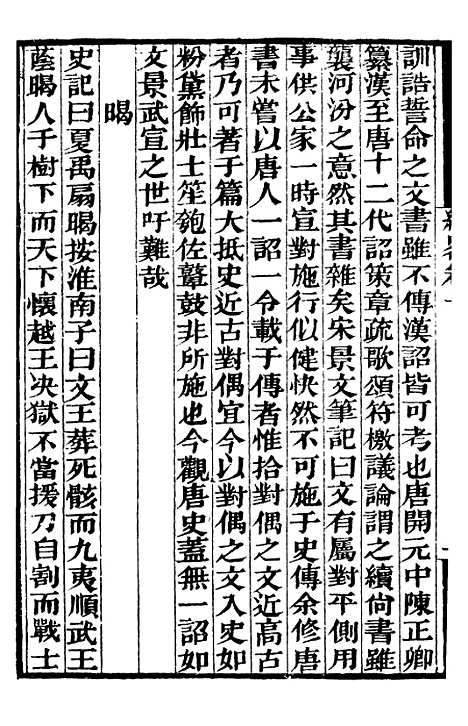 訓誥誓命之文書雖不傳漢詔皆可考也唐開元中陳正卿
纂漢至唐十二代詔策章疏歌頌符檄議論謂之續尙書雖
襲河汾之意然其書雜矣宋景文筆記曰文有屬對平側用
事供公家一時宣對施行似健快然不可施于史傳余修唐
書未嘗以唐人一詔一令載于傳者惟拾對偶之文近高古
者乃可著于篇大抵史近古對偶宜今以對偶之文入史如
粉黛飾壯士笙匏佐鼙鼓非所施也今觀唐史蓋無一詔如
文景武宣之世吁難哉
暍
史記曰夏禹扇暍按淮南子曰文王葬死骸而九夷順武王
蔭暍人于樹下而天下懷越王决獄不當援刀自割而戰士